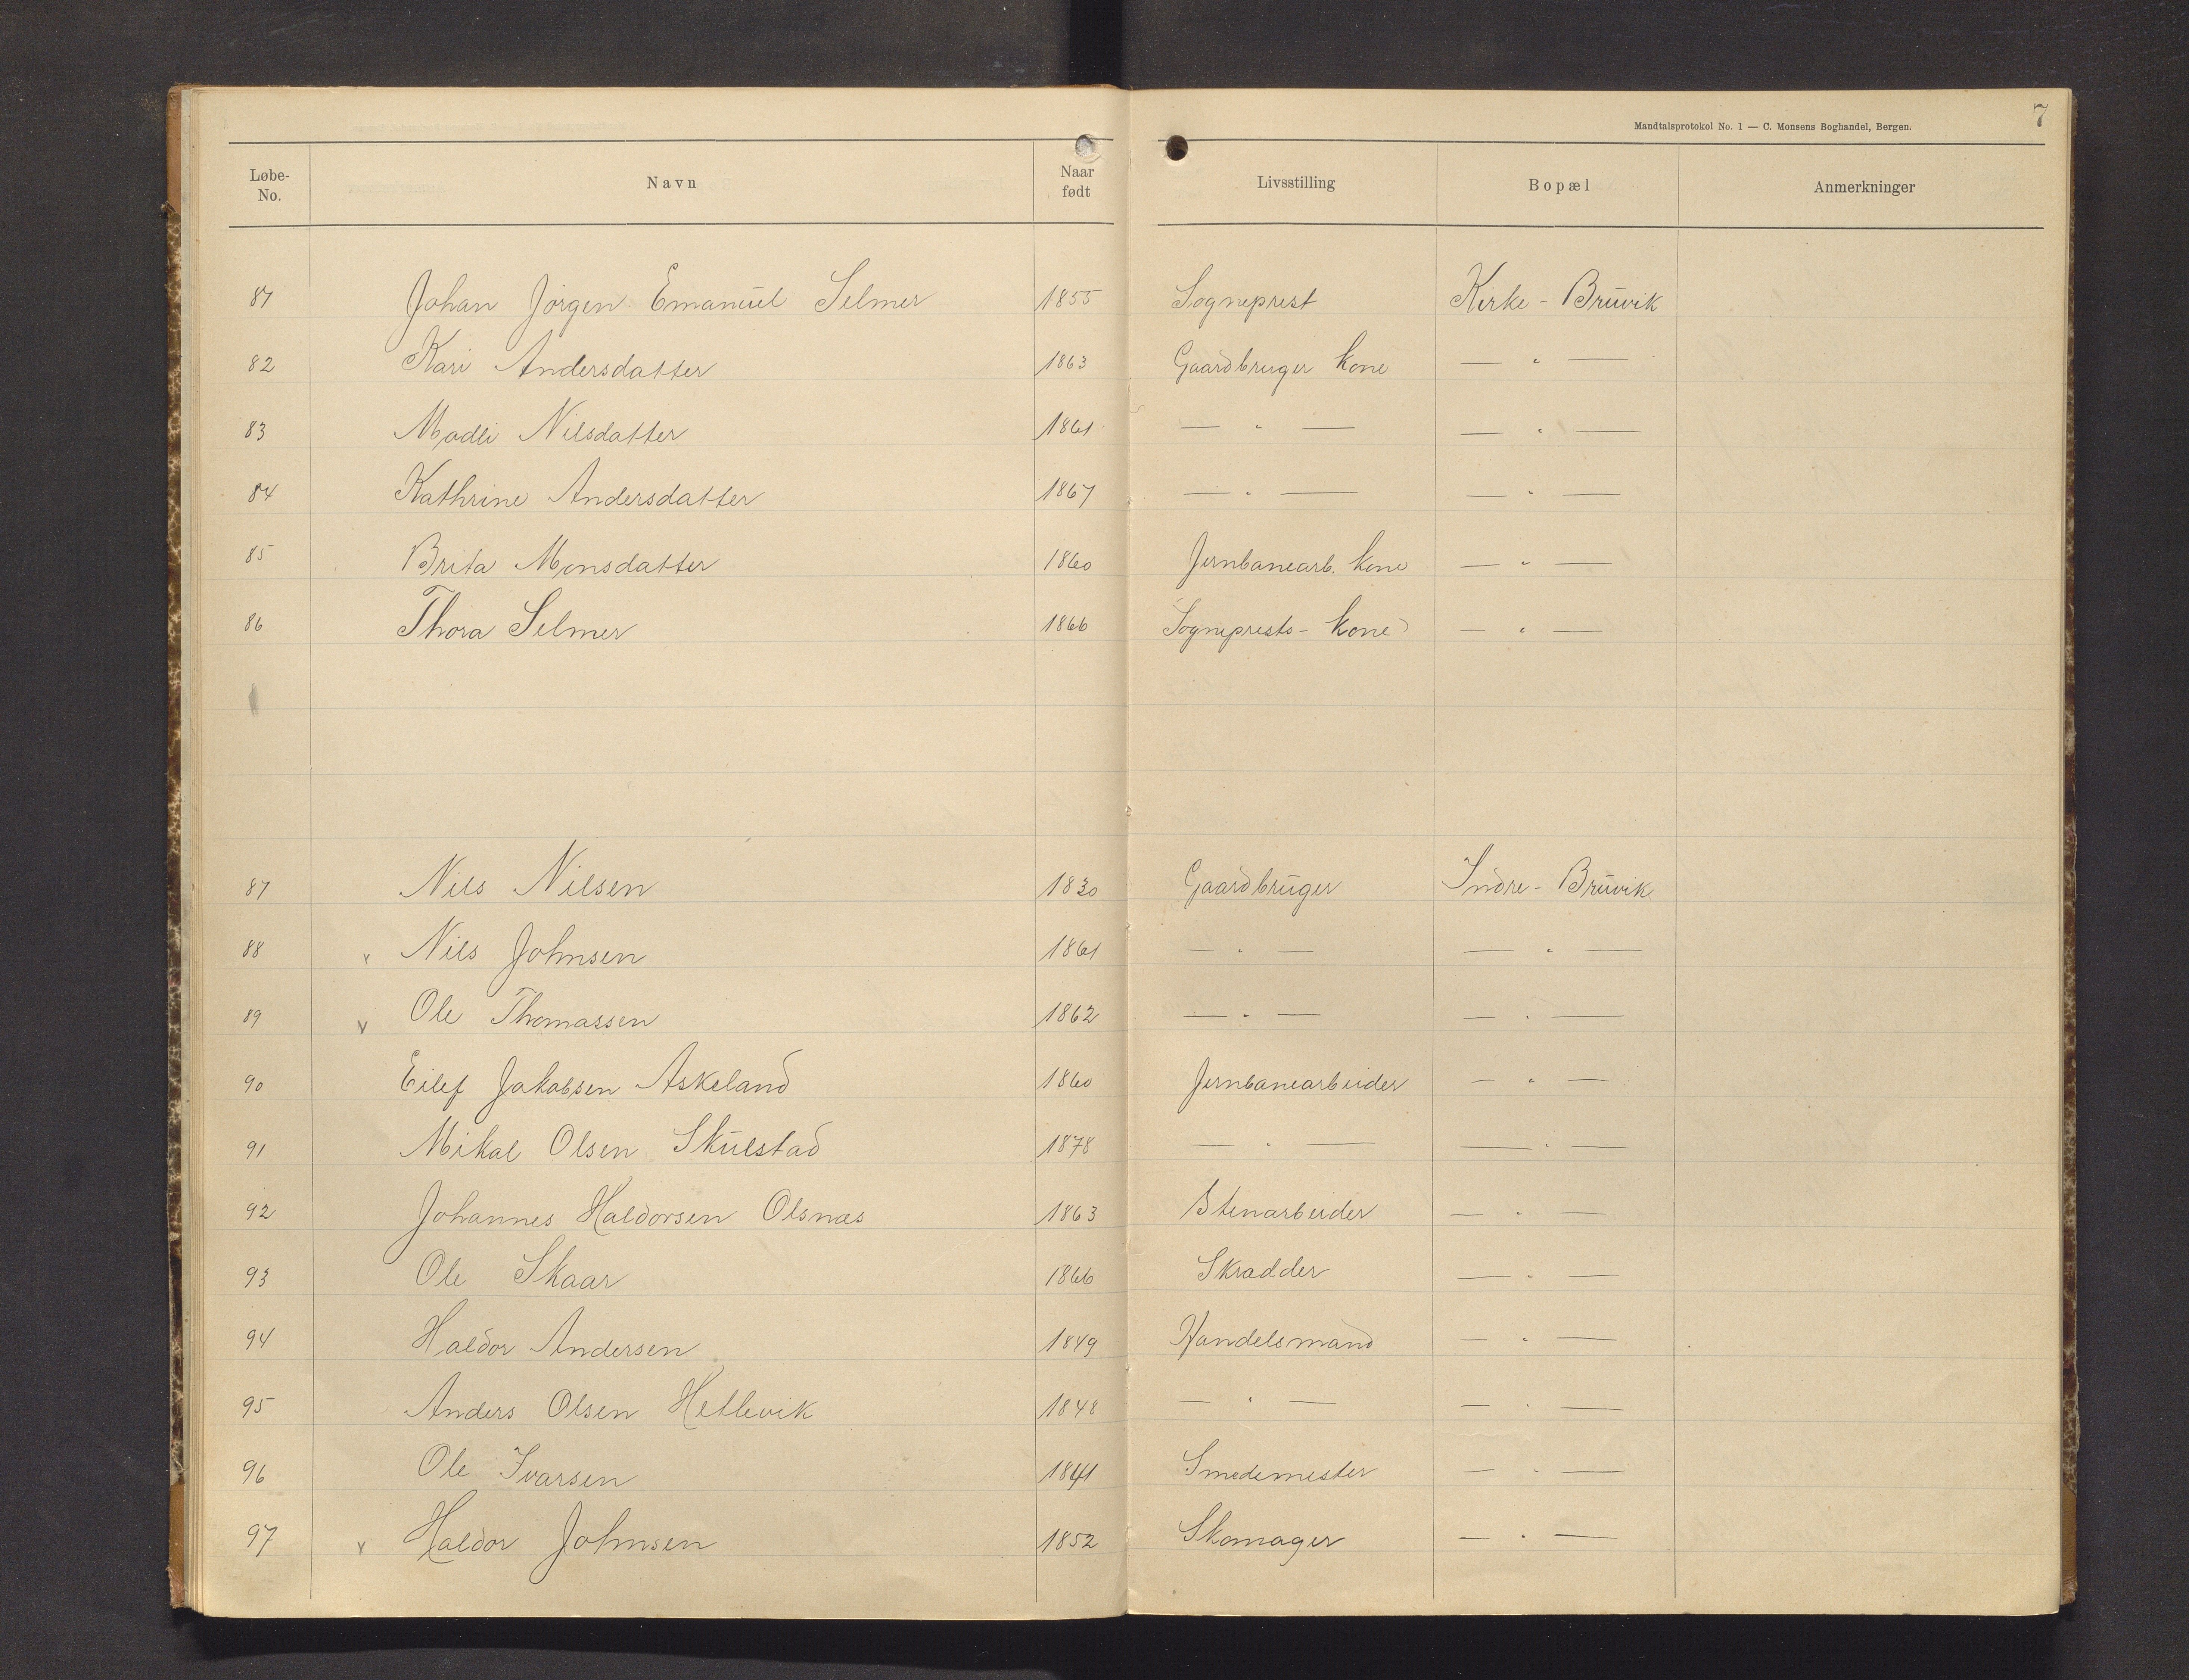 Mandtalsprotokol No. 1 — C. Monsens Boghandel, Bergen. 7
Løbe-No. Navn Naar født Livsstilling Bopæl Anmerkninger
81 Johan Jørgen Emanuel Selmer 1855 Sogneprest Kirke - Bruvik
82 Kari Andersdatter 1863 Gaardbruger kone — " —
83 Madli Nilsdatter 1861 — " — — " —
84 Kathrine Andersdatter 1867 — " — — " —
85 Brita Monsdatter 1860 Jernbanearb. kone — " —
86 Thora Selmer 1866 Sogneprests - kone — " —
87 Nils Nilsen 1830 Gaardbruger Indre - Bruvik
88 v Nils Johnsen 1861 — " — — " —
89 v Ole Thomassen 1862 — " — — " —
90 Eilef Jakobsen Askeland 1860 Jernbanearbeider — " —
91 Mikal Olsen Skulstad 1878 — " — — " —
92 Johannes Haldorsen Olsnæs 1863 Stenarbeider — " —
93 Ole Skaar 1866 Skrædder — " —
94 Haldor Andersen 1849 Handelsmand — " —
95 Anders Olsen Hetlevik 1848 — " — — " —
96 Ole Ivarsen 1841 Smedemester — " —
97 v Haldor Johnsen 1852 Skomager — " —